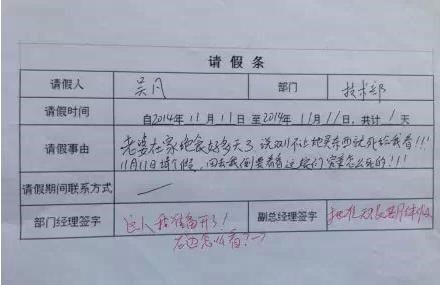 请假条
请假人 吴凡 部门 技术部
请假时间 自2014年11月11日至2014年11月11日，共计1天
请假事由 老婆在家绝食好多天了，说双11不让她买东西就死给我看!!!
11月11日请个假，回去我倒要看看这娘们究竟怎么死的!!!
请假期间联系方式 —
部门经理签字 这人我准备开了! 副总经理签字
右边怎么看?→